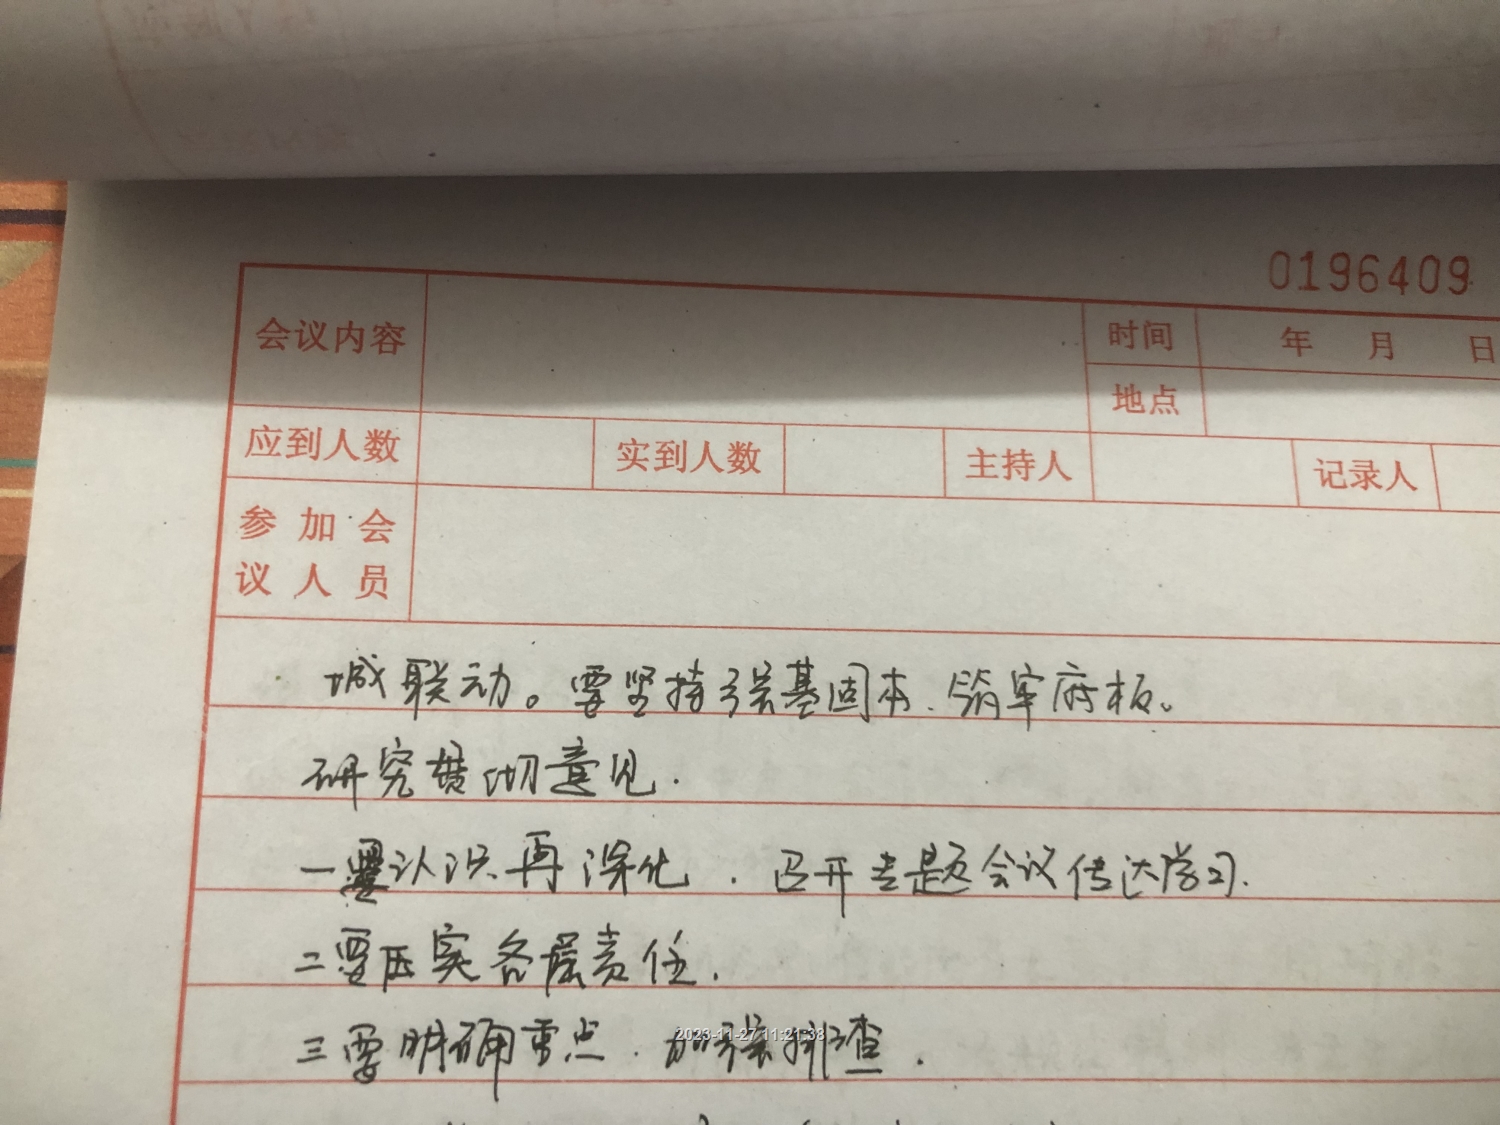 0196409
会议内容 时间 年 月 日
地点
应到人数 实到人数 主持人 记录人
参加会
议人员
城联动。要坚持强基固本、筑牢府板。
研究贯彻意见.
一要认识再深化. 召开专题会议传达学习.
二要压实各层责任.
三要明确重点. 加强排查.
2023-11-27 11:21:38